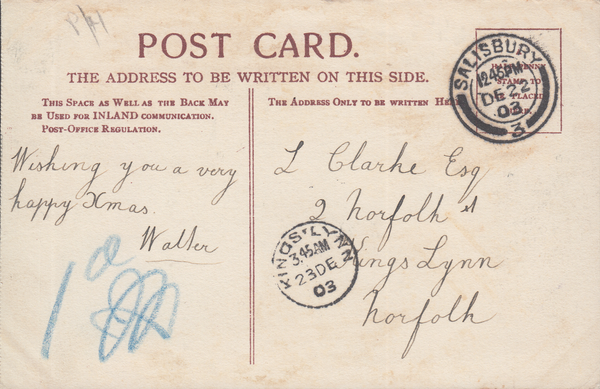 POST CARD.
THE ADDRESS TO BE WRITTEN ON THIS SIDE.
THIS SPACE AS WELL AS THE BACK MAY
BE USED FOR INLAND COMMUNICATION.
POST-OFFICE REGULATION.
Wishing you a very
happy Xmas.
Walter
1d
THE ADDRESS ONLY TO BE WRITTEN
SALISBURY
12.45PM
DE 22
03
3
STAMP TO
PLACED
L Clarke Esq
2 Norfolk St
Kings Lynn
Norfolk
KINGS LYNN
3.45AM
23 DE
03